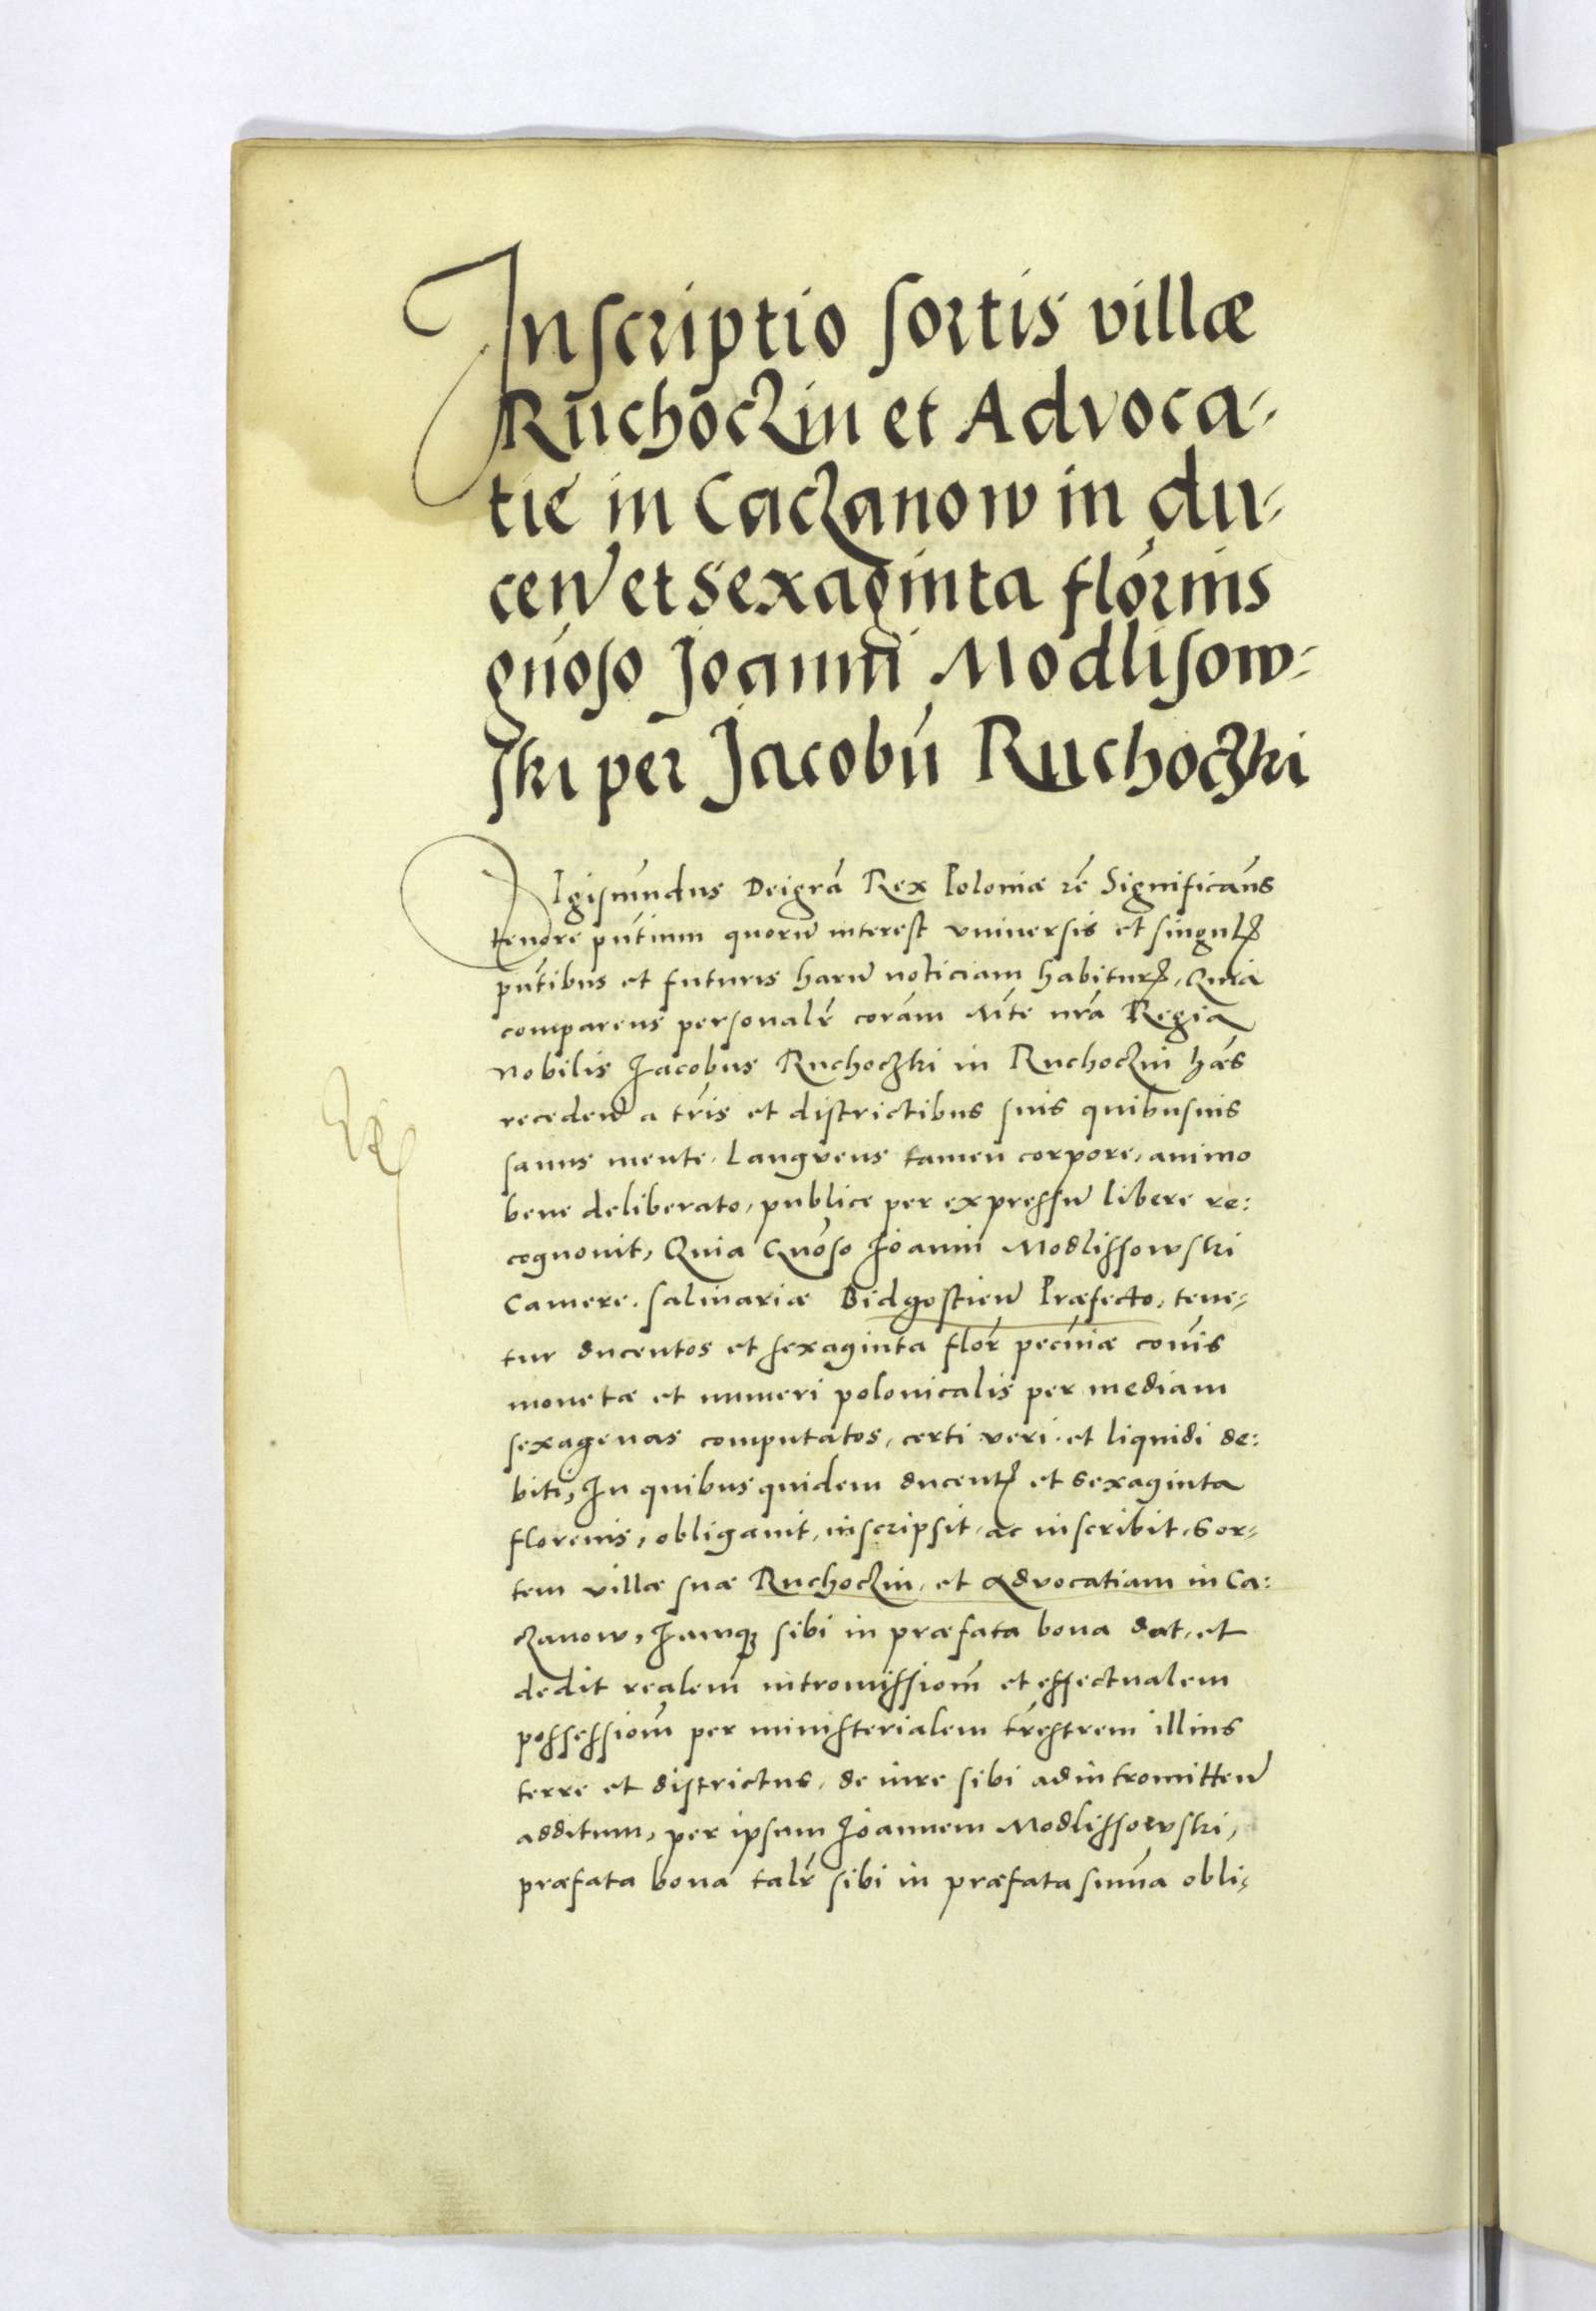 Inscriptio sortis villæ
Ruchoczin et Advoca-
tiē in Caczanow in du-
ceñ et sexaginta flórinis
gńoso Joanni Modlisow-
ski per Jacobū Ruchoczki
Sigismūndus Dei grā Rex Poloniæ rē Significāns
tenore pn̄tium quorū interest vniuersis et singul
pn̄tibus et futuris harū noticiam habitur, Quia
comparens personalr̄ coram Mte nrā Regia
Nobilis Jacobus Ruchoczki in Ruchoczin hæs
recedeñ a tr̄is et districtibus suis quibusuis
sanus mente, Langvens tamen corpore, animo
bene deliberato, publice per expressū libere re:
cognouit, Quia Gn̄oso Joanni Modlissowski
Camere salinariæ Bidgostieñ Præfecto, tene-
tur ducentos et sexaginta flor̄ pecūiæ cōuis
monetæ et numeri polonicalis per mediam
sexagenas computatos, certi veri et liquidi de:
biti, In quibus quidem ducent et sexaginta
florenis, obligauit, inscripsit, ac inscribit, Sor-
tem villæ suæ Ruchoczin, et Advocatiam in Ca:
czanow, Jamq sibi in præfata bona dat, et
dedit realem intromissiom̄ et effectualem
possessiom̄ per ministerialem tr̄estrem illius
terre et districtus, de iure sibi ad intromitteñ
additum, per ipsum Joannem Modlissowski,
præfata bona talr̄ sibi in præfata sum̄a obli-